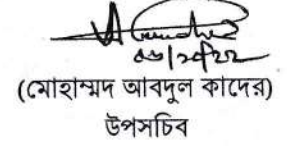 (মোহাম্মদ আবদুল কাদের)
উপসচিব